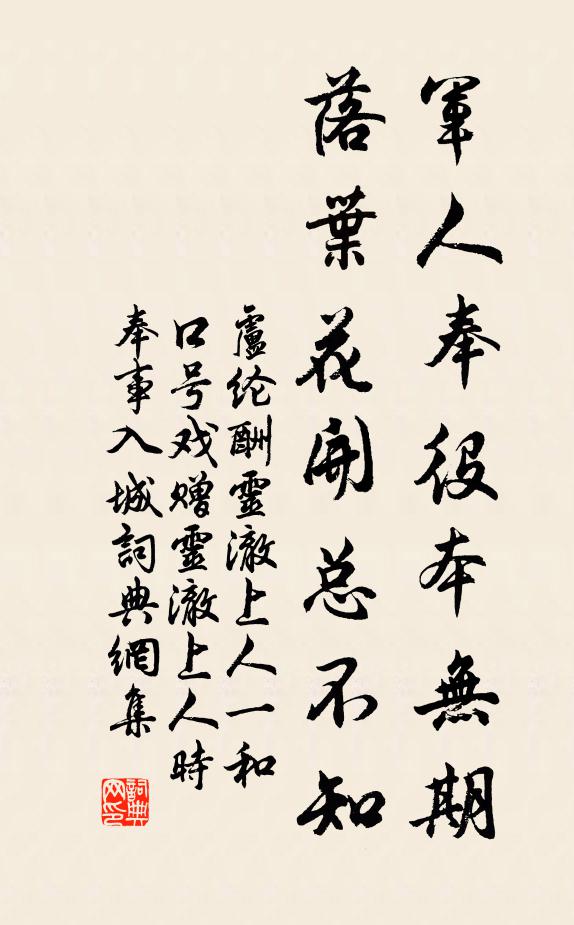 軍人奉役本無期
落葉花開总不知
盧纶酬靈澈上人一和
口号戏赠靈澈上人時
奉事入城詞典網集
詞典网印